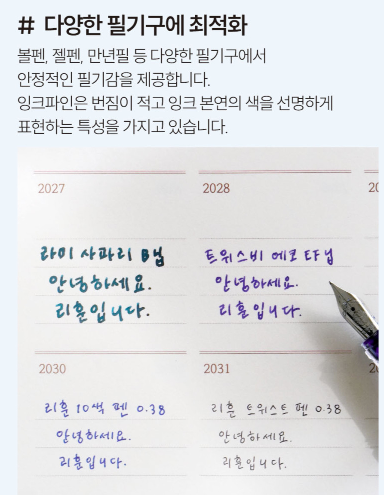 # 다양한 필기구에 최적화
볼펜, 젤펜, 만년필 등 다양한 필기구에서
안정적인 필기감을 제공합니다.
잉크파인은 번짐이 적고 잉크 본연의 색을 선명하게
표현하는 특성을 가지고 있습니다.
2027
라미 사파리 B닙
안녕하세요.
리훈입니다.
2028
트위스비 에코 EF닙
안녕하세요.
리훈입니다.
2030
리훈 10색 펜 0.38
안녕하세요.
리훈입니다.
2031
리훈 트위스트 펜 0.38
안녕하세요.
리훈입니다.